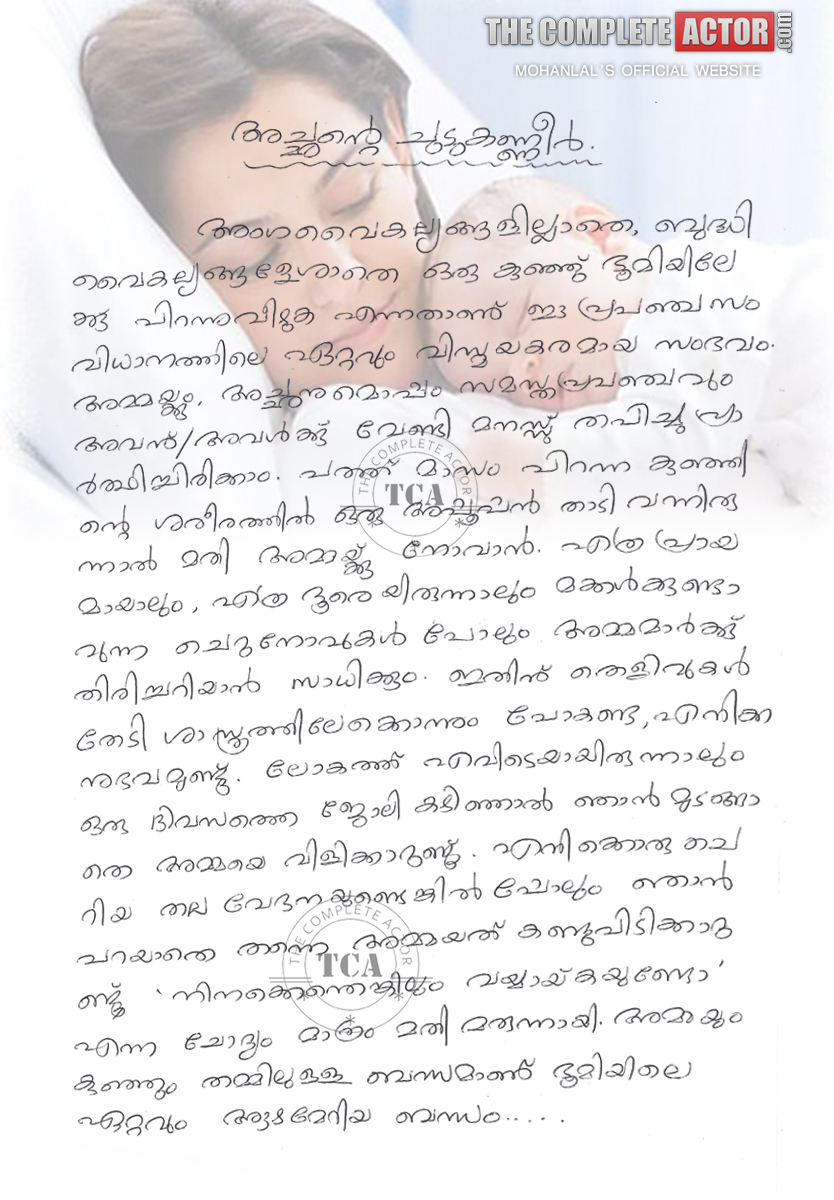 THE COMPLETE ACTOR.com
MOHANLAL'S OFFICIAL WEBSITE
അച്ഛന്റെ ചുടുകണ്ണീർ.
അംഗവൈകല്യങ്ങളില്ലാതെ, ബുദ്ധി
വൈകല്യങ്ങളേശാതെ ഒരു കുഞ്ഞ് ഭൂമിയിലേ
ക്കു പിറന്നുവീഴുക എന്നതാണ് ഈ പ്രപഞ്ച സം
വിധാനത്തിലെ ഏറ്റവും വിസ്മയകരമായ സംഭവം.
അമ്മയ്ക്കും, അച്ഛനുമൊപ്പം സമസ്ത പ്രപഞ്ചവും
അവൻ/അവൾക്കു വേണ്ടി മനസ്സ് തപിച്ചു പ്രാ
ർത്ഥിച്ചിരിക്കാം. പത്ത് മാസം പിറന്ന കുഞ്ഞി
ന്റെ ശരീരത്തിൽ ഒരു അപ്പൂപ്പൻ താടി വന്നിരു
ന്നാൽ മതി അമ്മയ്ക്കു നോവാൻ. എത്ര പ്രായ
മായാലും, എത്ര ദൂരെ യിരുന്നാലും മക്കൾക്കുണ്ടാ
വുന്ന ചെറുനോവുകൾ പോലും അമ്മമാർക്ക്
തിരിച്ചറിയാൻ സാധിക്കും. ഇതിന് തെളിവുകൾ
തേടി ശാസ്ത്രത്തിലേക്കൊന്നും പോകണ്ട, എനിക്ക
നുഭവമുണ്ട്. ലോകത്ത് എവിടെയായിരുന്നാലും
ഒരു ദിവസത്തെ ജോലി കഴിഞ്ഞാൽ ഞാൻ മുടങ്ങാ
തെ അമ്മയെ വിളിക്കാറുണ്ട്. എനിക്കൊരു ചെ
റിയ തല വേദനയുണ്ടെങ്കിൽ പോലും ഞാൻ
പറയാതെ തന്നെ അമ്മയത് കണ്ടുപിടിക്കാറു
ണ്ട് 'നിനക്കെന്തെങ്കിലും വയ്യായ്കയുണ്ടോ'
എന്ന ചോദ്യം മാത്രം മതി മരുന്നായി. അമ്മയും
കുഞ്ഞും തമ്മിലുള്ള ബന്ധമാണ് ഭൂമിയിലെ
ഏറ്റവും ആഴമേറിയ ബന്ധം.....
THE COMPLETE ACTOR
TCA
THE COMPLETE ACTOR
TCA